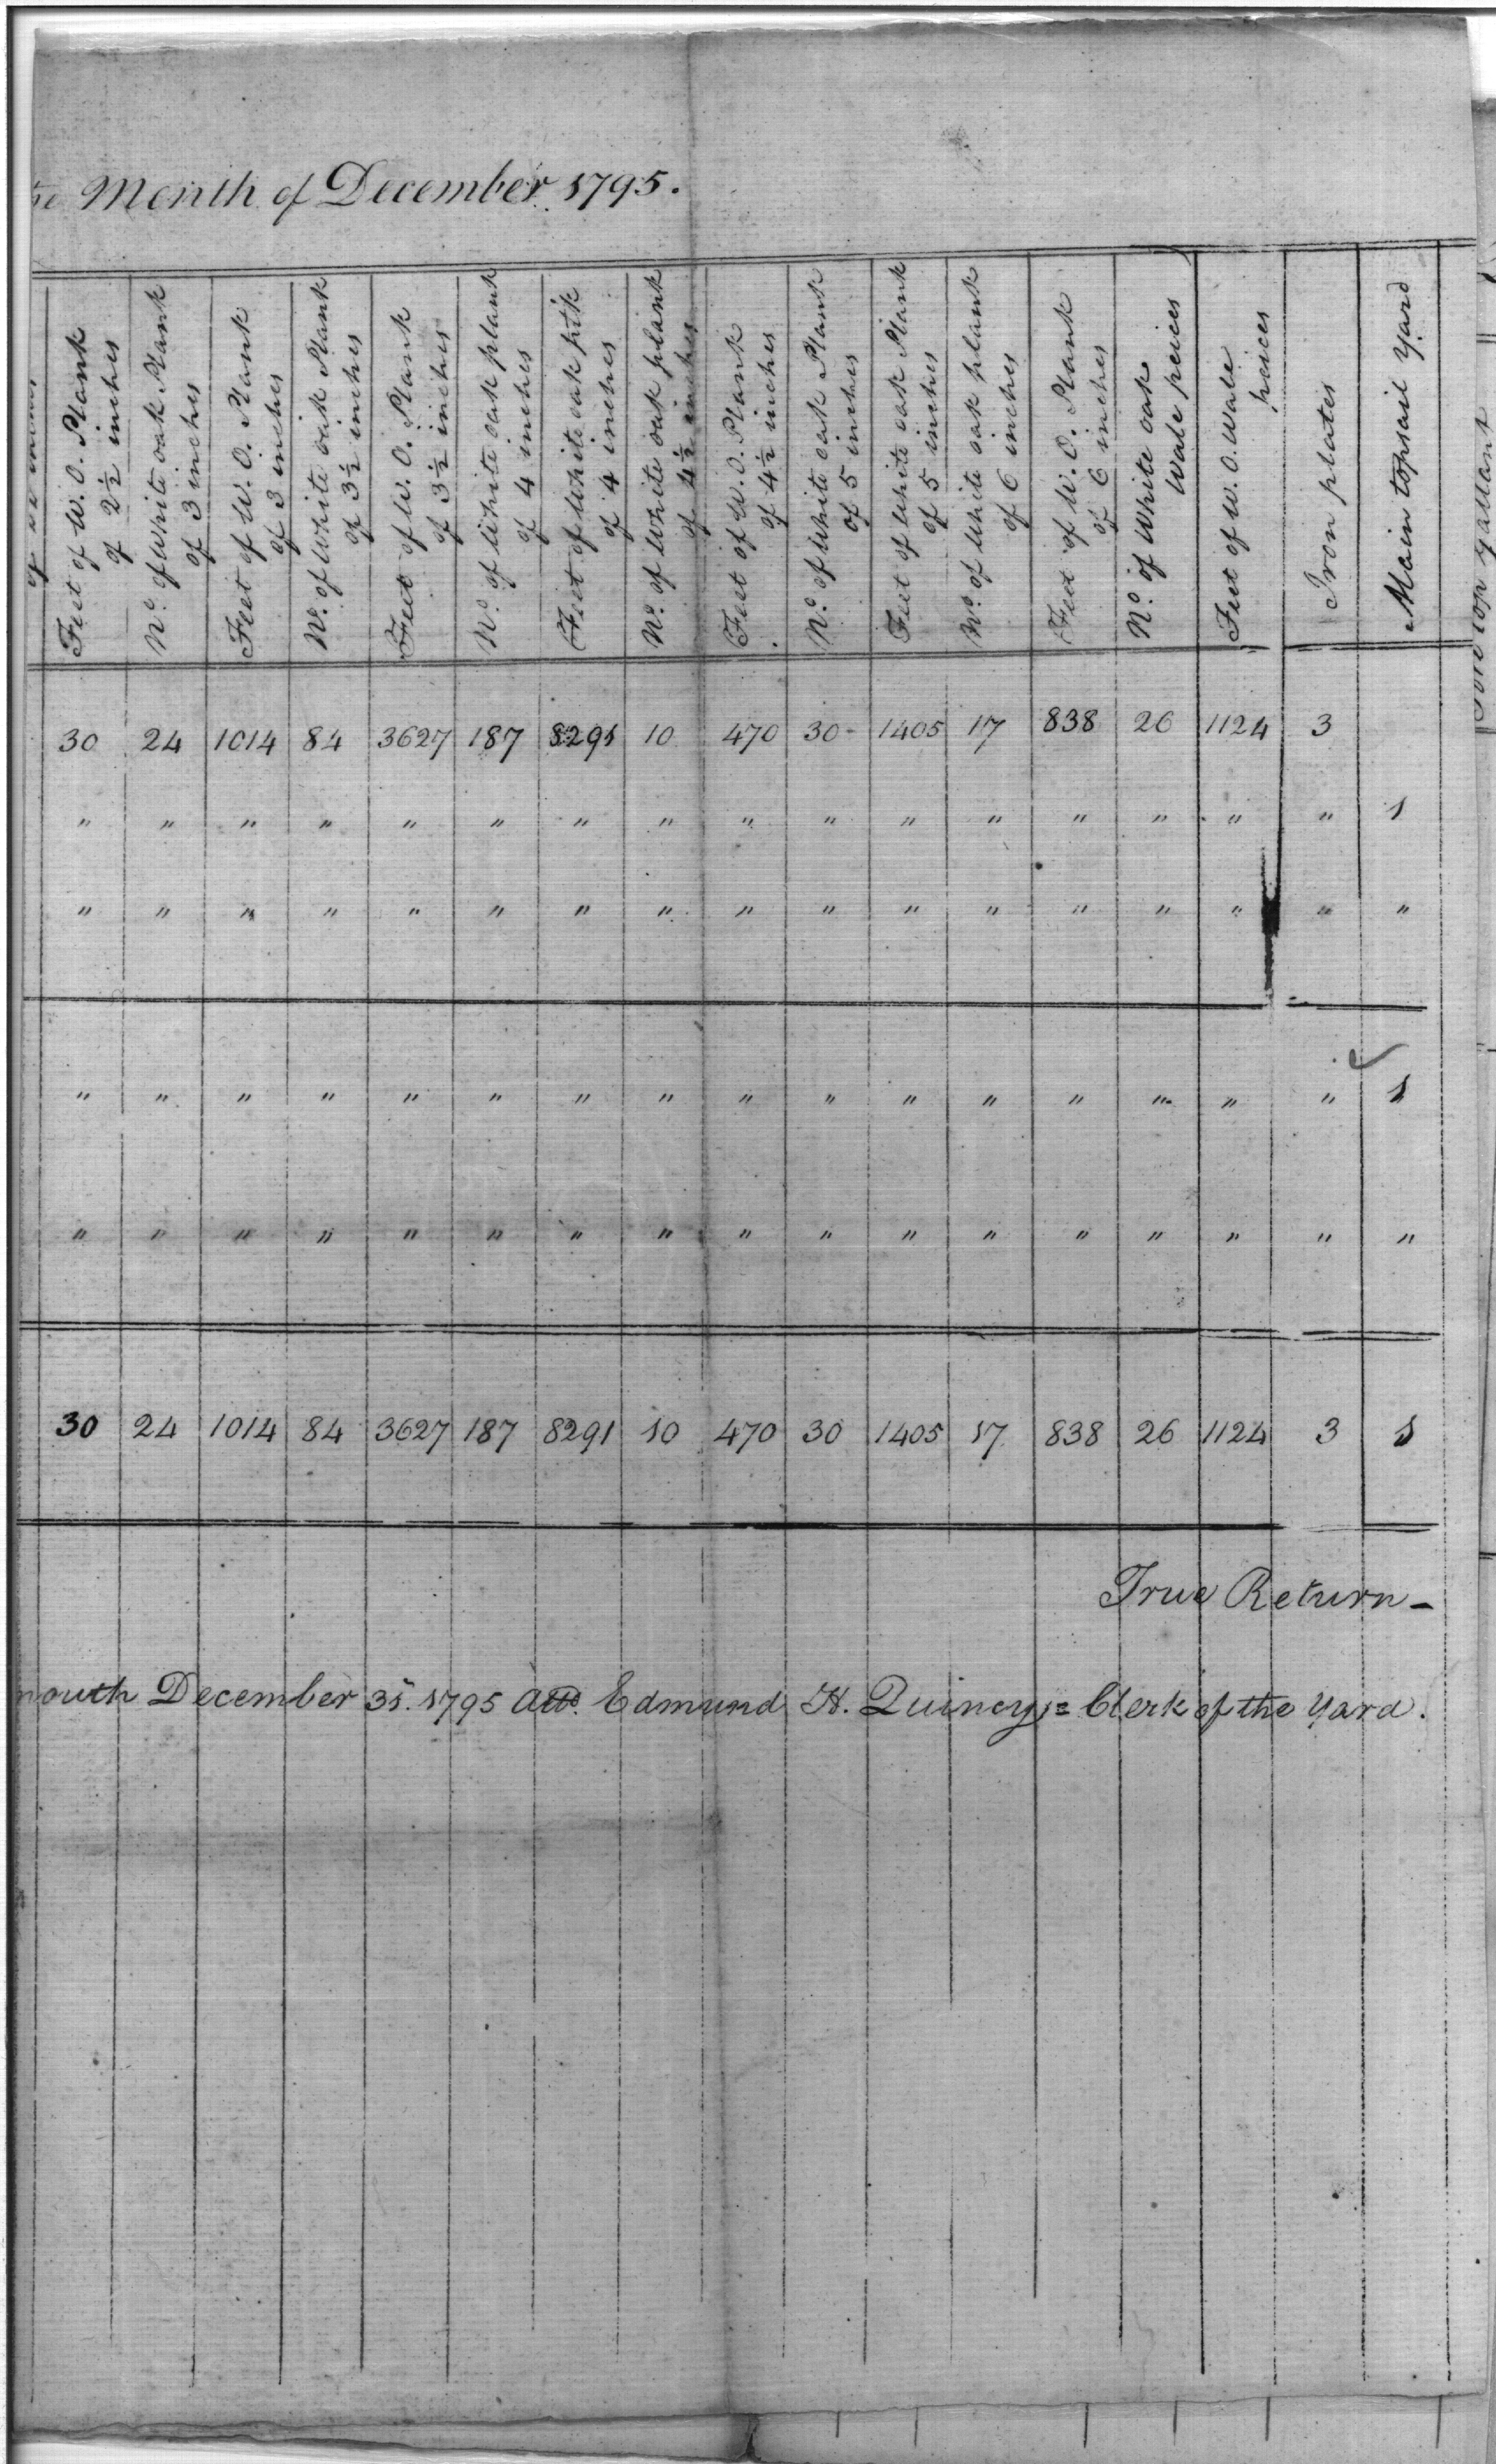 Month of December 1795.
Feet of W. O. Plank
of 2½ inches
No. of White oak Plank
of 3 inches
Feet of W. O. Plank
of 3 inches
No. of White oak Plank
of 3½ inches
Feet of W. O. Plank
of 3½ inches
No. of White oak plank
of 4 inches
Feet of White oak plk
of 4 inches
No. of White oak plank
of 4½ inches
Feet of W. O. Plank
of 4½ inches
No. of White oak Plank
of 5 inches
Feet of White oak Plank
of 5 inches
No. of White oak plank
of 6 inches
Feet of W. O. Plank
of 6 inches
No. of White oak
Wale peices
Feet of W. O. Wale
peices
Iron plates
Main topsail Yard
top gallant
30 24 1014 84 3627 187 8291 10 470 30 1405 17 838 26 1124 3
" " " " " " " " " " " " " " " " 1
" " " " " " " " " " " " " " " " "
" " " " " " " " " " " " " " " " 1
" " " " " " " " " " " " " " " " "
30 24 1014 84 3627 187 8291 10 470 30 1405 17 838 26 1124 3 1
True Return
mouth December 31. 1795 Edmund H. Quincy = Clerk of the Yard.